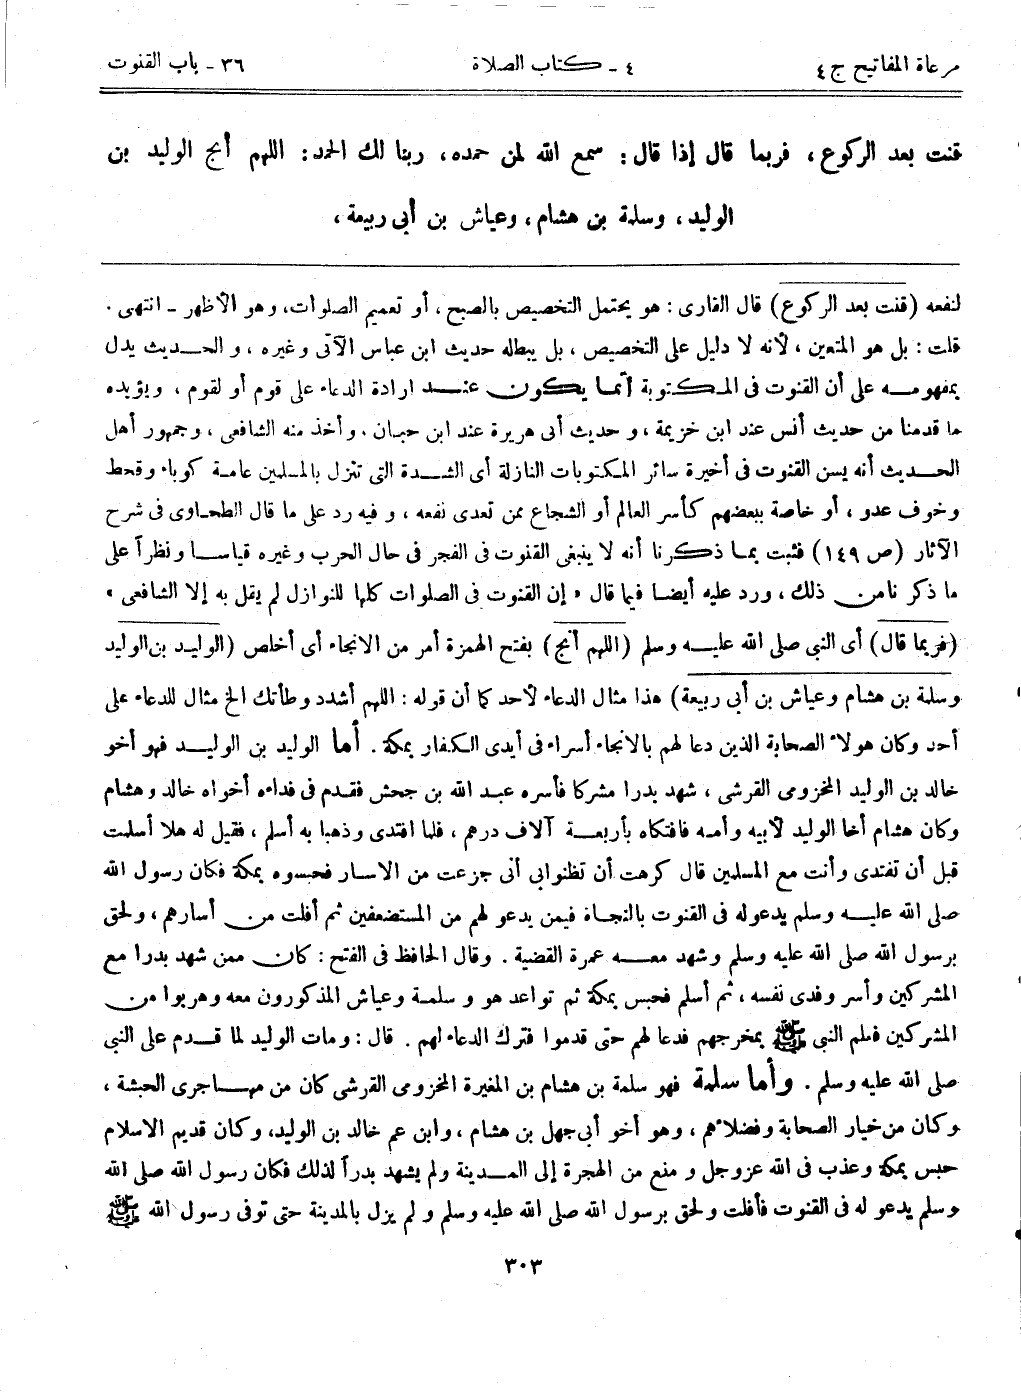 مرعاة المفاتيح ج ٤
٤ - كتاب الصلاة
٣٦ - باب القنوت
قنت بعد الركوع، فربما قال إذا قال: سمع الله لمن حمده، ربنا لك الحمد: اللهم أنج الوليد بن
الوليد، وسلمة بن هشام، وعياش بن أبى ربيعة،
لنفعه (قنت بعد الركوع) قال القارى: هو يحتمل التخصيص بالصبح، أو تعميم الصلوات، وهو الأظهر - انتهى.
قلت: بل هو المتعين، لأنه لا دليل على التخصيص، بل يبطله حديث ابن عباس الآتى وغيره، و الحديث يدل
بمفهومه على أن القنوت فى المكتوبة أنما يكون عند ارادة الدعاء على قوم أو لقوم، ويؤيده
ما قدمنا من حديث أنس عند ابن خزيمة، و حديث أبى هريرة عند ابن حبان. وأخذ منه الشافعى، وجمهور أهل
الحديث أنه يسن القنوت فى أخيرة سائر المكتوبات النازلة أى الشدة التى تنزل بالمسلمين عامة كوباء وقحط
وخوف عدو، أو خاصة ببعضهم كأسر العالم أو الشجاع ممن تعدى نفعه، و فيه رد على ما قال الطحاوى فى شرح
الآثار (ص ١٤٩) فثبت بما ذكرنا أنه لا ينبغى القنوت فى الفجر فى حال الحرب وغيره قياسا ونظراً على
ما ذكر نا من ذلك، ورد عليه أيضا فيما قال « إن القنوت فى الصلوات كلها للنوازل لم يقل به إلا الشافعى »
(فربما قال) أى النبى صلى الله عليه وسلم (اللهم أنج) بفتح الهمزة أمر من الانجاء أى أخلص (الوليد بن الوليد
وسلمة بن هشام وعياش بن أبى ربيعة) هذا مثال الدعاء لأحد كما أن قوله: اللهم أشدد وطأتك الخ مثال للدعاء على
أحد وكان هولاء الصحابة الذين دعا لهم بالانجاء أسراء فى أيدى الكفار بمكة. أما الوليد بن الوليد فهو أخو
خالد بن الوليد المخزومى القرشى، شهد بدرا مشركا فأسره عبد الله بن جحش فقدم فى فداءه أخواه خالد وهشام
وكان هشام أخا الوليد لأبيه وأمه فافتكاه بأربعة آلاف درهم، فلما افتدى وذهبا به أسلم، فقيل له هلا أسلمت
قبل أن تفتدى وأنت مع المسلمين قال كرهت أن تظنوابى أنى جزعت من الاسار فحبسوه بمكة فكان رسول الله
صلى الله عليه وسلم يدعوله فى القنوت بالنجاة فيمن يدعو لهم من المستضعفين ثم أفلت من أسارهم، ولحق
برسول الله صلى الله عليه وسلم وشهد معه عمرة القضية. وقال الحافظ فى الفتح: كان ممن شهد بدرا مع
المشركين وأسر وفدى نفسه، ثم أسلم فحبس بمكة ثم تواعد هو و سلمة وعياش المذكورون معه وهربوا من
المشركين فعلم النبى ﷺ بمخرجهم فدعا لهم حتى قدموا فترك الدعاء لهم. قال: ومات الوليد لما قدم على النبى
صلى الله عليه وسلم. وأما سلمة فهو سلمة بن هشام بن المغيرة المخزومى القرشى كان من مهاجرى الحبشة،
وكان من خيار الصحابة وفضلائهم، وهو أخو أبى جهل بن هشام، وابن عم خالد بن الوليد، وكان قديم الاسلام
حبس بمكة وعذب فى الله عزوجل و منع من الهجرة إلى المدينة ولم يشهد بدراً لذلك فكان رسول الله صلى الله
وسلم يدعو له فى القنوت فأفلت ولحق برسول الله صلى الله عليه وسلم و لم يزل بالمدينة حتى توفى رسول الله ﷺ
٣٠٣